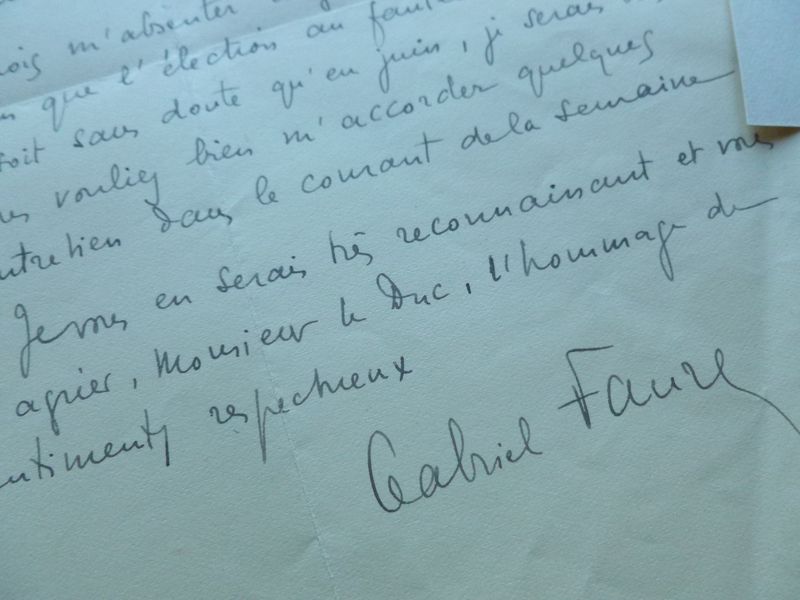 mois m'absenter
que l'élection au fauteuil
soit sans doute qu'en juin, je serais
vouliez bien m'accorder quelques
entretien dans le courant de la semaine
Je vous en serais très reconnaissant et vous
agréer, Monsieur le Duc, l'hommage de
sentiments respectueux
Gabriel Faure